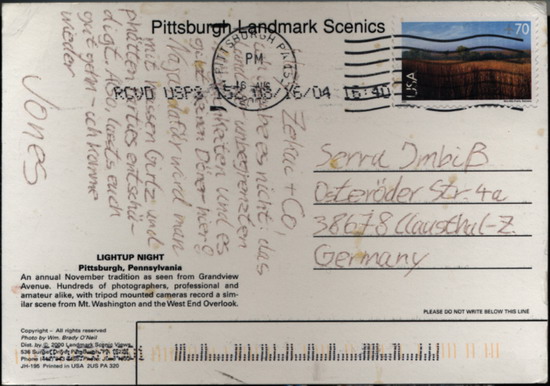 Pittsburgh Landmark Scenics
PITTSBURGH PA
PM
RCVD USPS 152 08/16/04 16:40
USA
70
Zekai + Co,
es nicht: das
unbegrenzten
und es
keinen Döner hier!
Naja, dafür wird man
mit heissen Girlz und
phatten Parties entschä-
digt. Also lassts euch
gut gehn - ich komme
wieder
Jones
Serra Imbiß
Osteröder Str. 4a
38678 Clausthal-Z.
Germany
LIGHTUP NIGHT
Pittsburgh, Pennsylvania
An annual November tradition as seen from Grandview
Avenue. Hundreds of photographers, professional and
amateur alike, with tripod mounted cameras record a sim-
ilar scene from Mt. Washington and the West End Overlook.
PLEASE DO NOT WRITE BELOW THIS LINE
Copyright - All rights reserved
Photo by Wm. Brady O'Neil
Dist. by © 2000 Landmark Scenic Views
Phone
JH-196 Printed in USA 2US PA 320